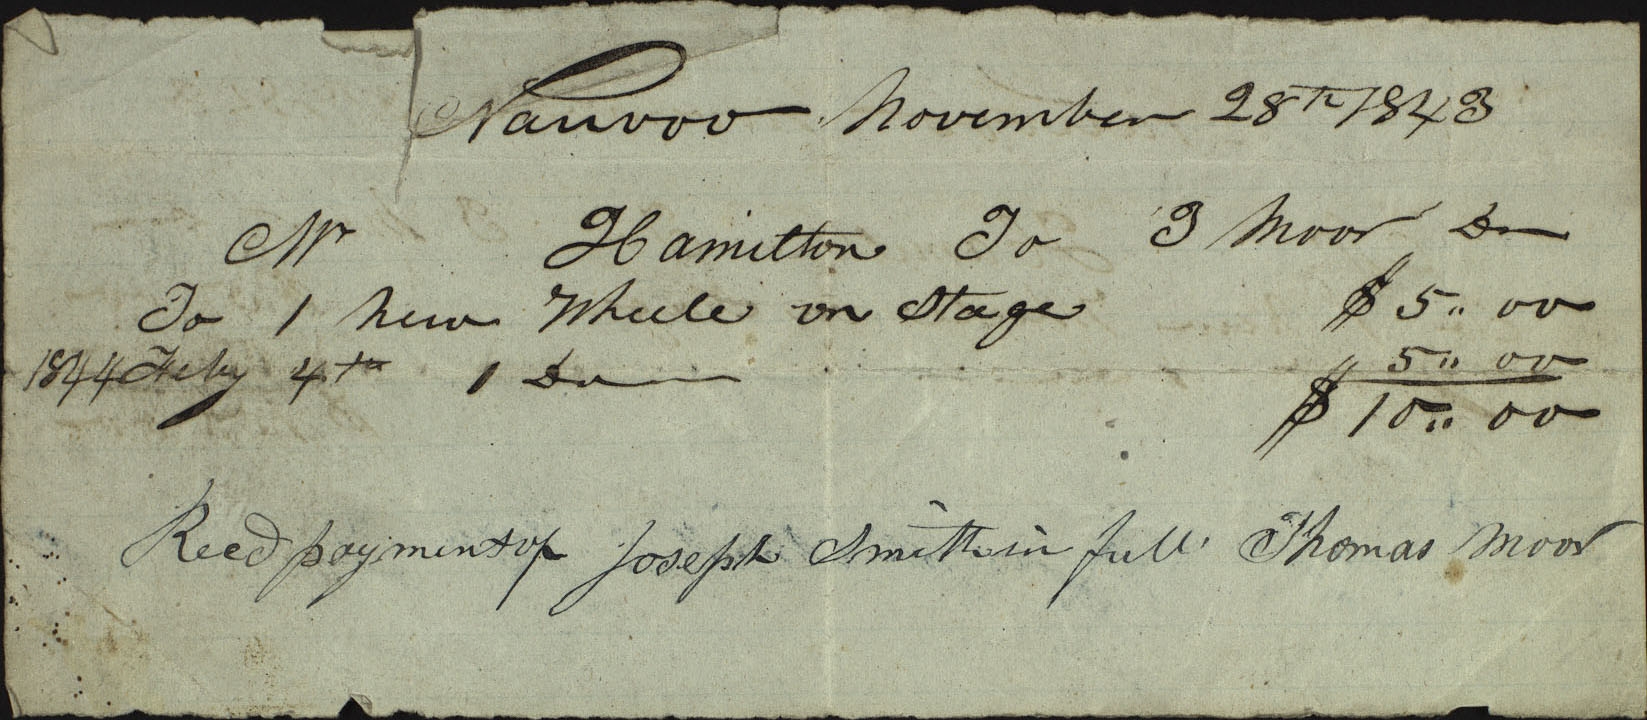 Nauvoo November 28th 1843
Mr Hamilton To T Moor Dr
To 1 new Wheele on Stage $5,, 00
1844 Feby 4th 1 Do $ 5,, 00
$ 10,, 00
Recd payment of Joseph Smith in full Thomas Moor